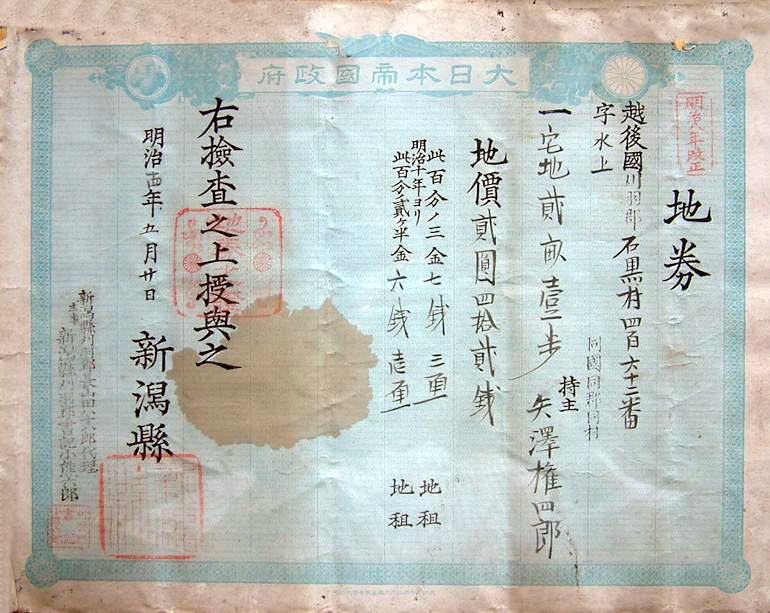 大日本帝國政府
明治八年改正
地券
越後國刈羽郡石黒村四百六十二番
字水上
一宅地貳畝壹歩
同國同郡同村
持主 矢澤権四郎
地價貳圓四拾貳銭
此百分ノ三金七銭三厘 地租
明治十年ヨリ
此百分ノ貳ヶ半金六銭壱厘 地租
右撿査之上授與之
明治十四年五月廿日
新潟縣
新潟縣刈羽郡長山田 代理
新潟縣刈羽郡書記小熊